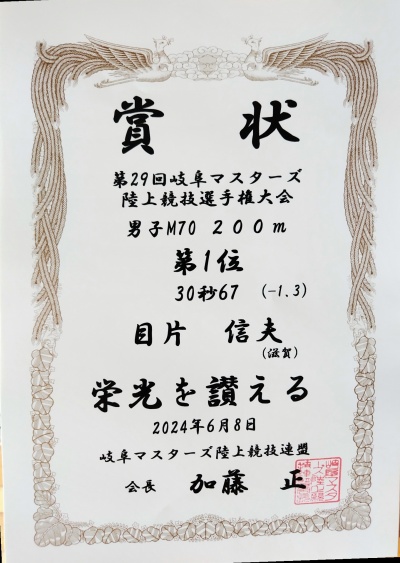 賞 状
第29回岐阜マスターズ
陸上競技選手権大会
男子M70 200m
第1位
30秒67 (-1.3)
目片 信夫
(滋賀)
栄光を讃える
2024年6月8日
岐阜マスターズ陸上競技連盟
会長 加藤 正